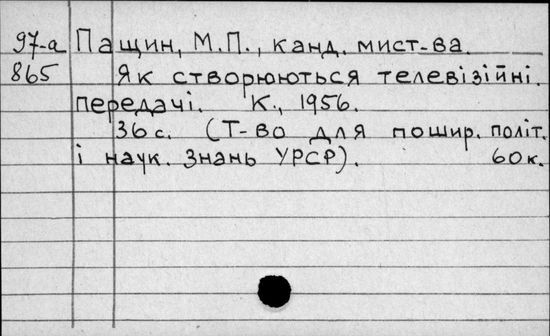 97-а Пащин, М.П., канд. мист-ва.
865 Як створюються телевізійні
передачі. К., 1956.
36 с. (Т-во для пошир. політ.
і наук. знань УРСР). 60 к.